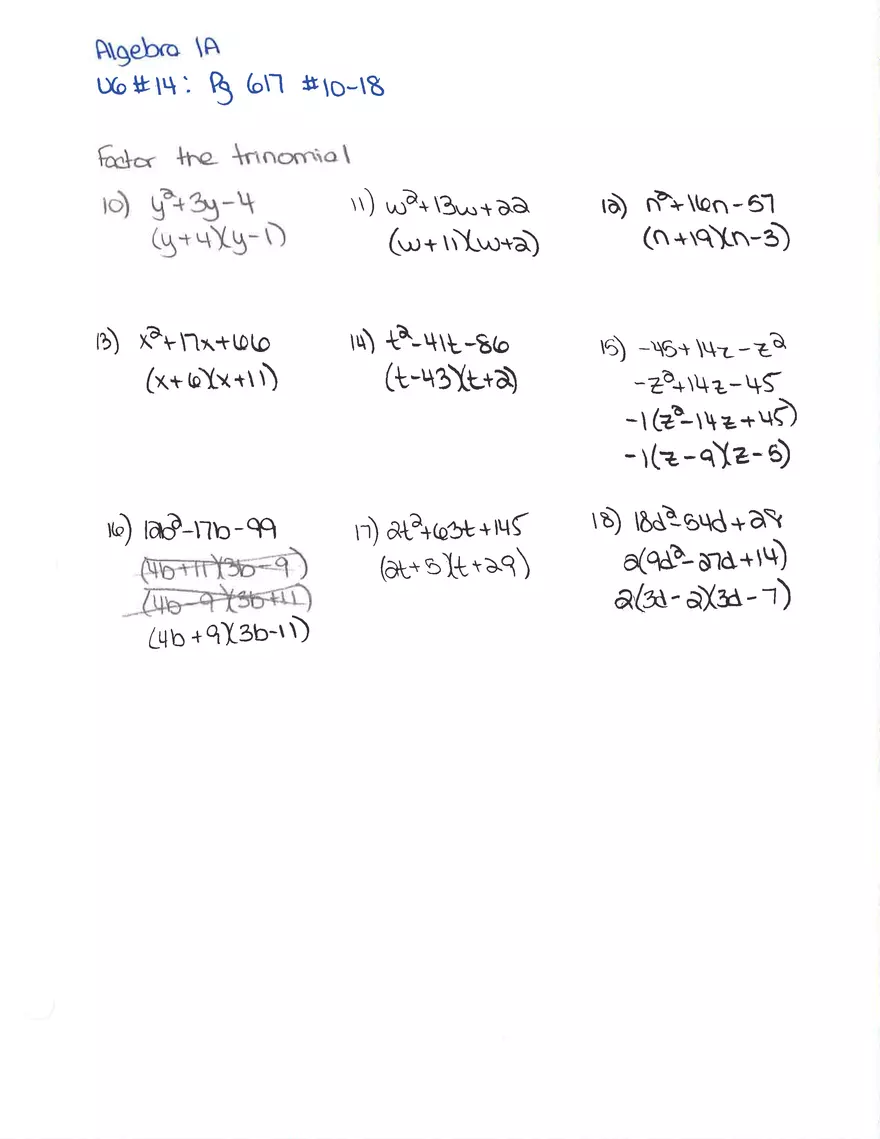 Algebra 1A
U6 #14: Pg 617 #10-18
Factor the trinomial
10) y²+3y-4
(y+4)(y-1)
11) w²+13w+22
(w+11)(w+2)
12) n²+16n-57
(n+19)(n-3)
13) x²+17x+66
(x+6)(x+11)
14) t²-41t-86
(t-43)(t+2)
15) -45+14z-z²
-z²+14z-45
-1(z²-14z+45)
-1(z-9)(z-5)
16) 12b²-17b-99
(4b+11)(3b-9)
(4b-9)(3b+11)
(4b+9)(3b-11)
17) 2t²+63t+145
(2t+5)(t+29)
18) 18d²-54d+28
2(9d²-27d+14)
2(3d-2)(3d-7)